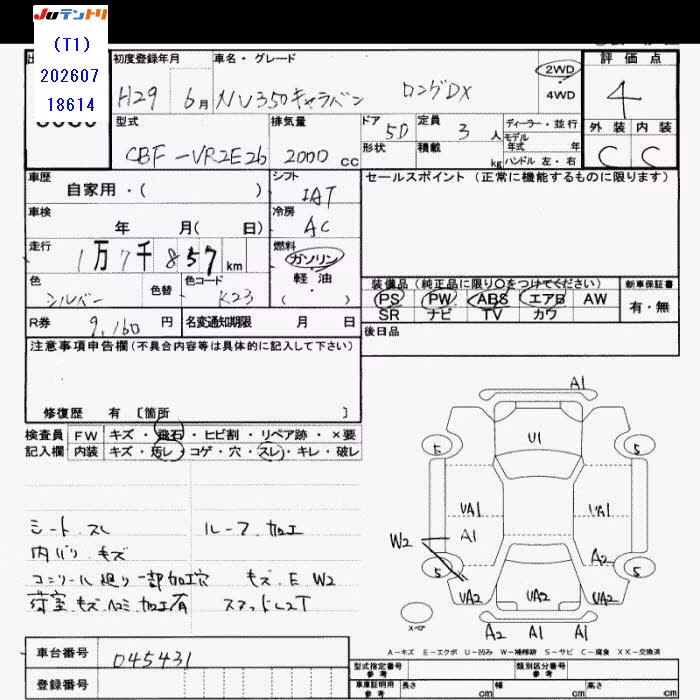 Juテントリ
(T1)
202607
18614
初度登録年月 車名・グレード 評価点
H29 6月 NV350キャラバン ロングDX 2WD 4WD 4
型式 排気量 ドア 5D 定員 3人 ディーラー・並行 外装 内装
CBF-VR2E26 2000cc 形状 積載 kg モデル年式 年 ハンドル 左・右 C C
車歴 シフト セールスポイント(正常に機能するものに限ります)
自家用・( ) IAT
車検 冷房
年 月( 日) AC
走行 燃料
1万7千857km ガソリン
軽油
色 色替 色コード ( )
シルバー K23
装備品(純正品に限り○をつけてください) 新車保証書
PS PW ABS エアB AW 有・無
SR ナビ TV カワ
R券 9,160円 名変通知期限 月 日
後日品
注意事項申告欄(不具合内容等は具体的に記入して下さい)
修復歴 有 〔箇所 〕
検査員 FW キズ・飛石・ヒビ割・リペア跡・×要
記入欄 内装 キズ・汚レ・コゲ・穴・スレ・キレ・破レ
シート.スレ ルーフ.加エ
内バリ.キズ
コンソール廻り一部加工穴 キズ.E W2
荷室.キズ.ヘコミ.加工有 スタッドレスT
A1
U1
5 5
UA1 UA1
W2 A1 A2
5 5
UA2 UA2 UA2
スペア
A2 A1 A1
A-キズ E-エクボ U-凹み W-補修跡 S-サビ C-腐食 XX-交換済
車台番号 045431
登録番号
型式指定番号 参考 類別区分番号 参考
車庫証明用 参考 長さ cm 幅 cm 高さ cm